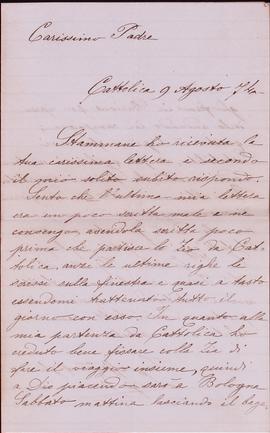 Carissimo Padre
Cattolica 9 Agosto 74
Stammane ho ricevuta la
tua carissima lettera e secondo
il mio solito subito rispondo.
Sento che l'ultima mia lettera
era un poco scritta male e ne
convengo, avendola scritta poco
prima che partisse lo Zio da Cat
tolica, anzi le ultime righe le
scrissi sulla finestra e quasi a tasto
essendomi trattenuto tutto il
giorno con esso. In quanto alla
mia partenza da Cattolica ho
creduto bene fissare colla Zia di
fare il viaggio insieme, quindi
a Dio piacendo sarò a Bologna
Sabbato mattina lasciando il